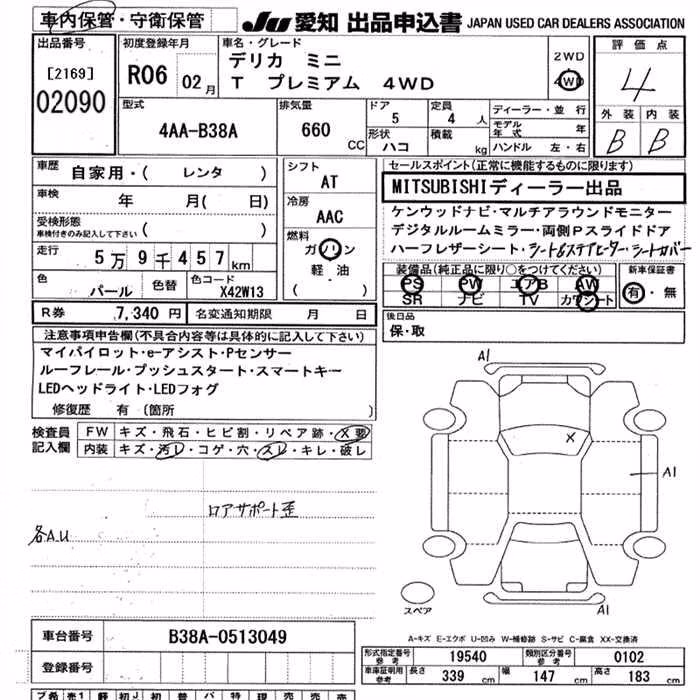 車内保管・守衛保管
JU 愛知 出品申込書 JAPAN USED CAR DEALERS ASSOCIATION
出品番号
[2169]
02090
初度登録年月
R06 02月
車名・グレード
デリカ ミニ
T プレミアム 4WD
2WD
4WD
評価点
4
外装 内装
B B
型式
4AA-B38A
排気量
660 CC
ドア
5
定員
4 人
形状
ハコ
積載
kg
ディーラー・並行
モデル年式 年
ハンドル 左・右
車歴 自家用・( レンタ )
車検 年 月( 日)
受検形態
車検付きのみ記入して下さい ( )
走行 5万9千457km
色 パール
色替
色コード
X42W13
シフト
AT
冷房
AAC
燃料
ガソリン
軽・油
( )
セールスポイント(正常に機能するものに限ります)
MITSUBISHIディーラー出品
ケンウッドナビ・マルチアラウンドモニター
デジタルルームミラー・両側Pスライドドア
ハーフレザーシート・シート&ステアヒーター・シートカバー
装備品(純正品に限り○をつけてください)
PS PW エアB AW
SR ナビ TV カワシート
新車保証書
有・無
R券 7,340 円
名変通知期限 月 日
後日品
保・取
注意事項申告欄(不具合内容等は具体的に記入して下さい)
マイパイロット・e-アシスト・Pセンサー
ルーフレール・プッシュスタート・スマートキー
LEDヘッドライト・LEDフォグ
修復歴 有 (箇所 )
検査員記入欄
FW キズ・飛石・ヒビ割・リペア跡・X要
内装 キズ・汚レ・コゲ・穴・スレ・キレ・破レ
ロアサポート歪
各A.U
A1
X
A1
A1
スペア
A-キズ E-エクボ U-凹み W-補修跡 S-サビ C-腐食 XX-交換済
車台番号 B38A-0513049
登録番号
形式指定番号 参考 19540
類別区分番号 参考 0102
車庫証明用 参考 長さ 339 cm 幅 147 cm 高さ 183 cm